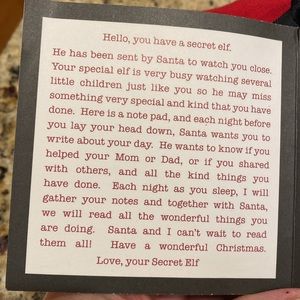 Hello, you have a secret elf.
He has been sent by Santa to watch you close.
Your special elf is very busy watching several
little children just like you so he may miss
something very special and kind that you have
done. Here is a note pad, and each night before
you lay your head down, Santa wants you to
write about your day. He wants to know if you
helped your Mom or Dad, or if you shared
with others, and all the kind things you
have done. Each night as you sleep, I will
gather your notes and together with Santa,
we will read all the wonderful things you
are doing. Santa and I can't wait to read
them all! Have a wonderful Christmas.
Love, your Secret Elf